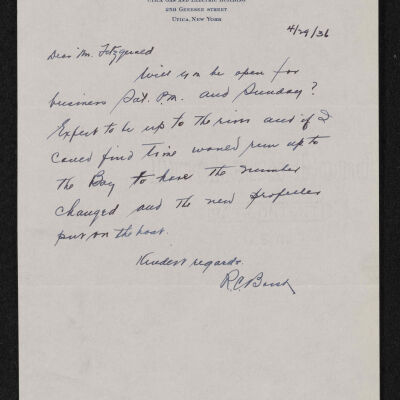 Utica Gas and Electric Building
258 Genesee Street
Utica, New York
4/29/36
Dear Mr. Fitzgerald
Will you be open for
business Sat. P.M. and Sunday?
Expect to be up to the river and if I
could find time would run up to
the Bay to have the number
changed and the new propeller
put on the boat.
Kindest regards.
R.C.